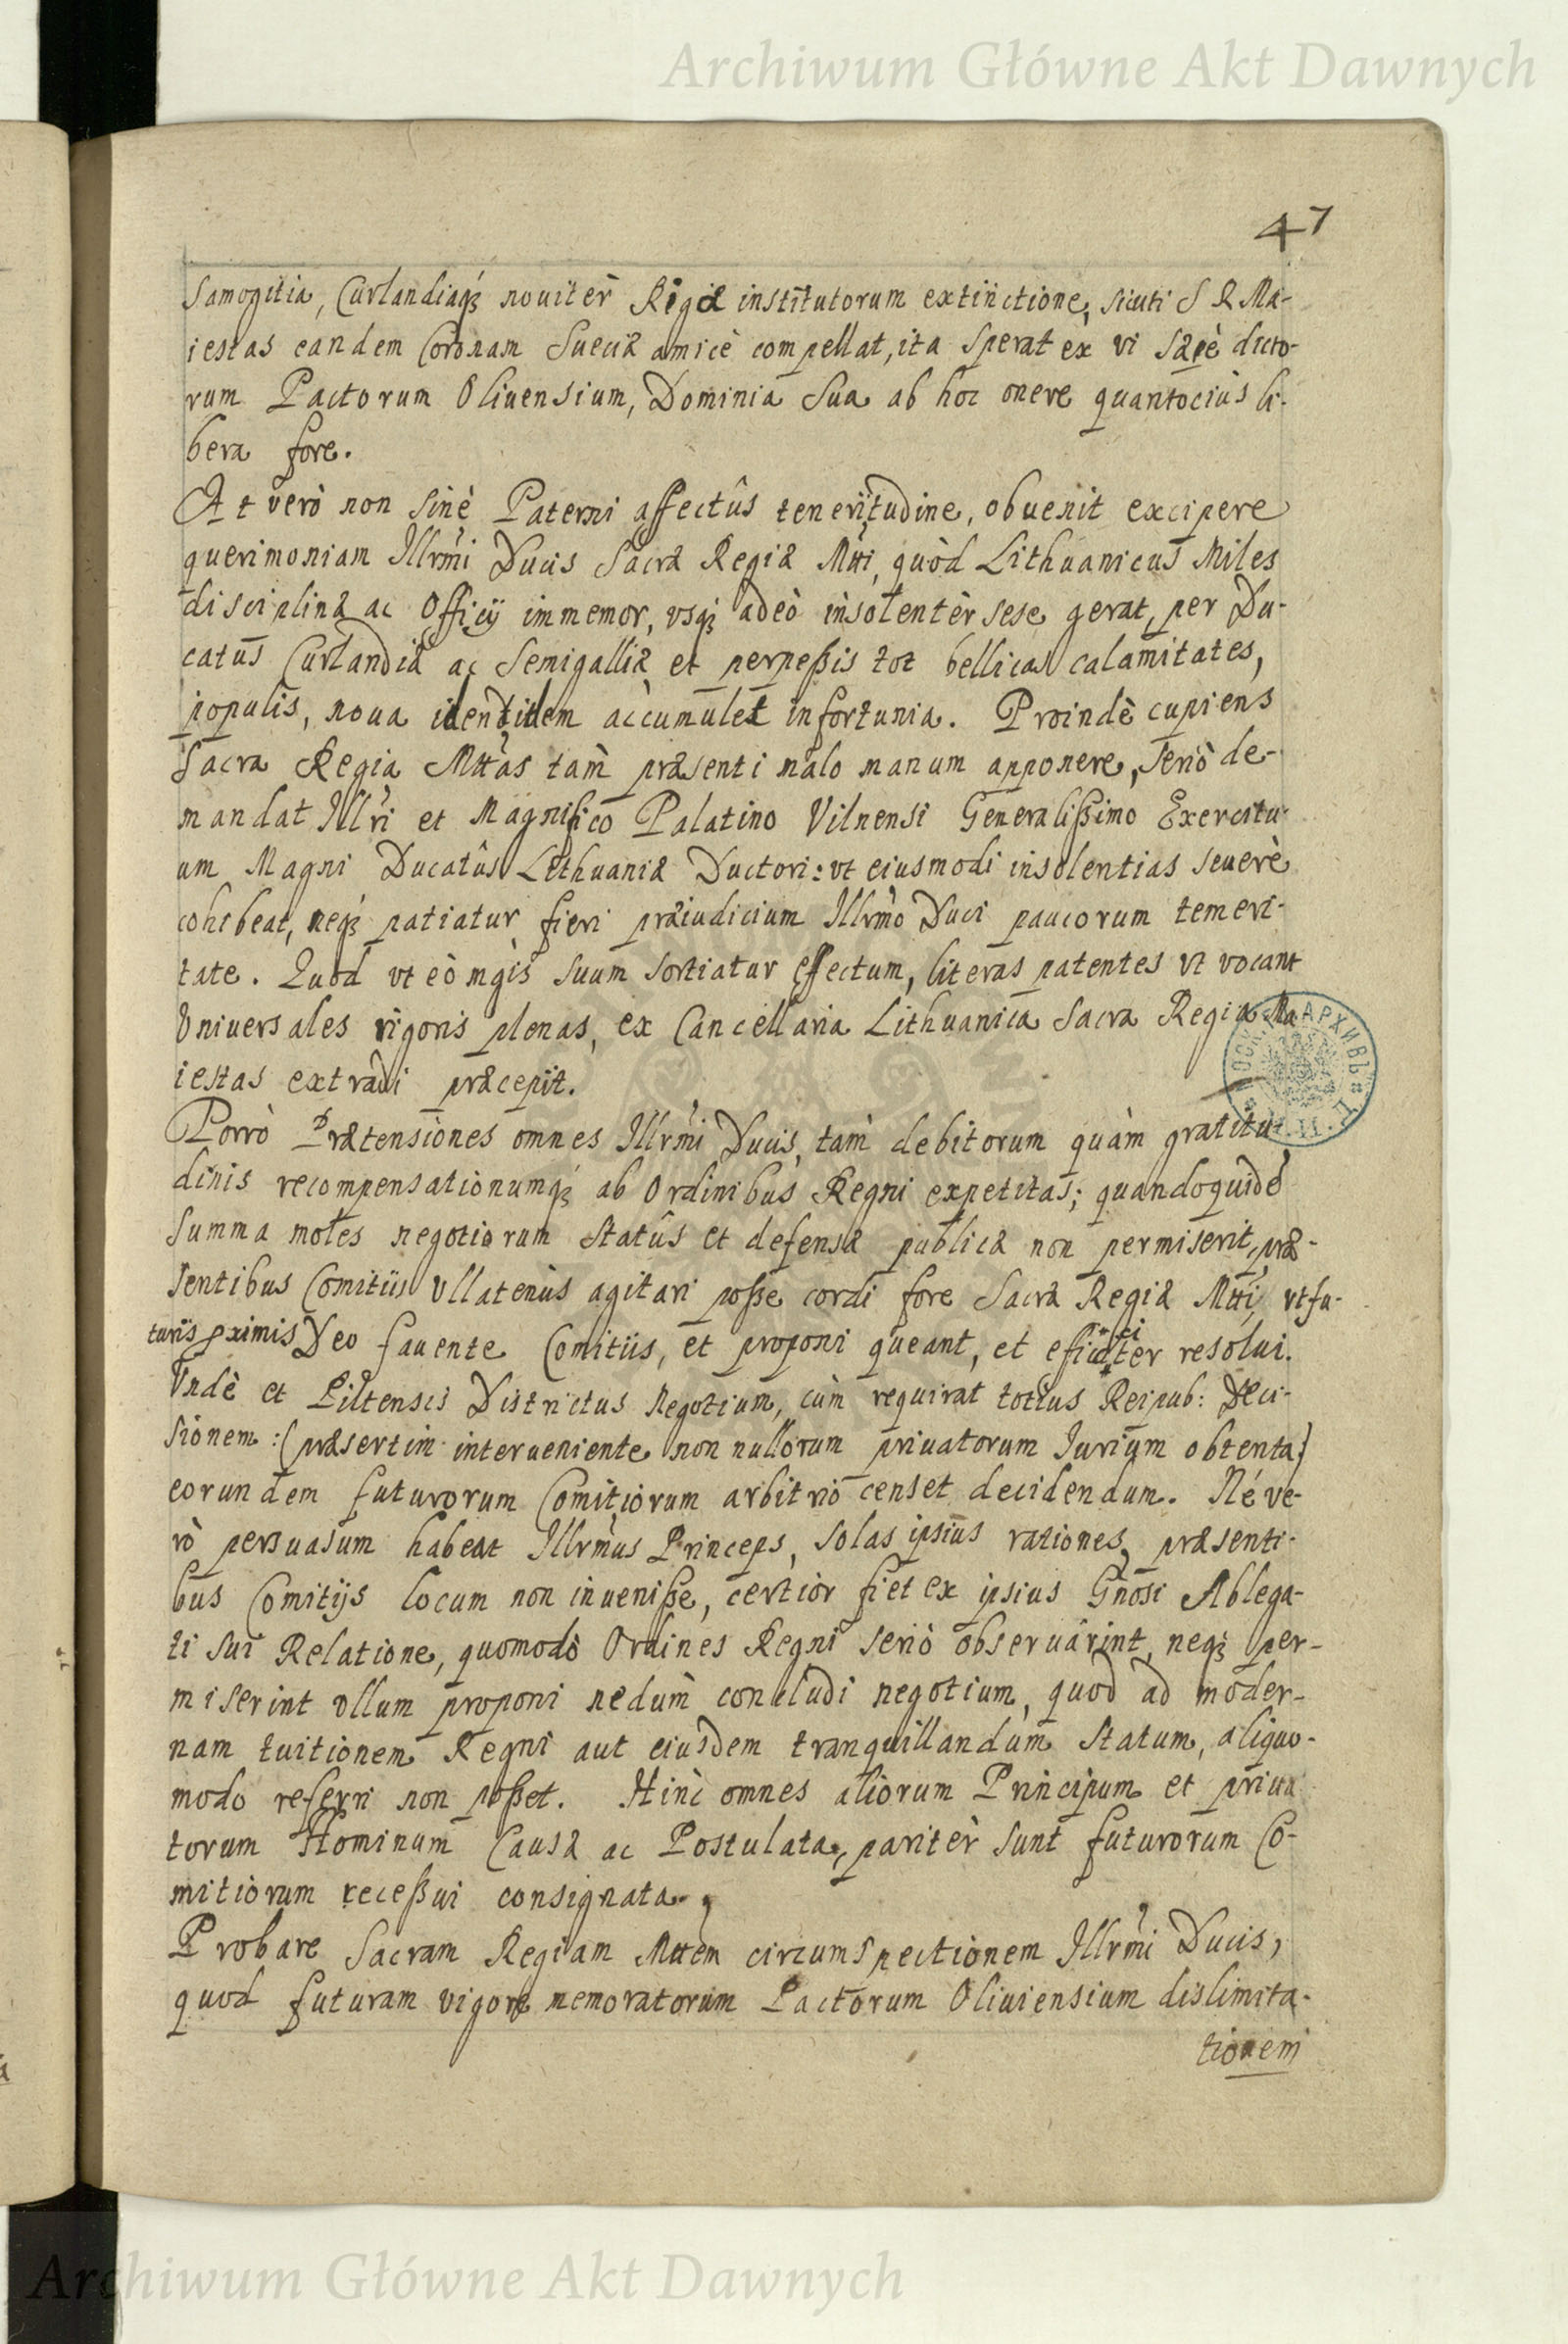 Archiwum Główne Akt Dawnych
47
Samogitia, Curlandiaqꝫ nouitèr Rigæ institutorum extinctione, sicuti S R Ma-
iestas eandem Coronam Sueciæ amicè compellat, ita sperat ex vi sæpè dicto-
rum Pactorum Oliuensium, Dominia Sua ab hoc onere quantociùs li-
bera fore.
At verò non sinè Paterni affectûs teneritudine, obuenit excipere
querimoniam Illrmi Ducis Sacræ Regiæ Mtti, quòd Lithuanicus Miles
disciplinæ ac Officÿ immemor, vsqꝫ adeò insolentèr sese gerat, per Du-
catûs Curlandiæ ac Semigalliæ et perpeßis tot bellicas calamitates,
populis, noua identidem accumulet infortunia. Proindè cupiens
Sacra Regia Mttas tam præsenti malo manum apponere, seriò de-
mandat Illri et Magnifico Palatino Vilnensi Generalißimo Exercitu-
um Magni Ducatûs Lithuaniæ Ductori: vt eiusmodi insolentias seuerè
cohibeat, neqꝫ patiatur fieri præiudicium Illrmo Duci paucorum temeri-
tate. Quod vt eò mgis suum sortiatur effectum, literas patentes vt vocant
Vniversales rigoris plenas, ex Cancellaria Lithuanica Sacra Regia Ma
iestas extradi præcepit.
Porrò Prætensiones omnes Illrmi Ducis, tàm debitorum quàm gratitu-
dinis recompensationumqꝫ ab Ordinibus Regni expetitas; quandoquidē
Summa moles negotiorum Statûs et defensæ publicæ non permiserit, præ-
sentibus Comitiis vllatenùs agitari poße cordi fore Sacræ Regiæ Mtti, vt fu-
turis pximis Deo fauente Comitiis, et proponi queant, et efficaciter resolui.
Vndè et Piltensis Districtus Negotium, cùm requirat totius Reipub: Deci-
sionem :(præsertim interueniente non nullorum priuatorum Iurium obtenta)
eorundem futurorum Comitiorum arbitrio censet decidendum. Né ve-
rò persuasum habeat Illrmus Princeps, solas ipsius rationes, præsenti-
bus Comitijs locum non inueniße, certior fiet ex ipsius Gnosi Ablega-
ti sui Relatione, quomodò Ordines Regni seriò obseruarint, neqꝫ per-
miserint vllum proponi nedum concludi negotium, quod ad moder-
nam tuitionem Regni aut eiusdem tranquillandum Statum, aliquo-
modo referri non poßet. Hinc omnes aliorum Principum et priua
torum Hominum Causæ ac Postulata, paritèr sunt futurorum Co-
mitiorum receßui consignata.
Probare Sacram Regiam Mttem circumspectionem Illrmi Ducis,
quod futuram vigore memoratorum Pactorum Oliuiensium dislimita-
tionem
Archiwum Główne Akt Dawnych